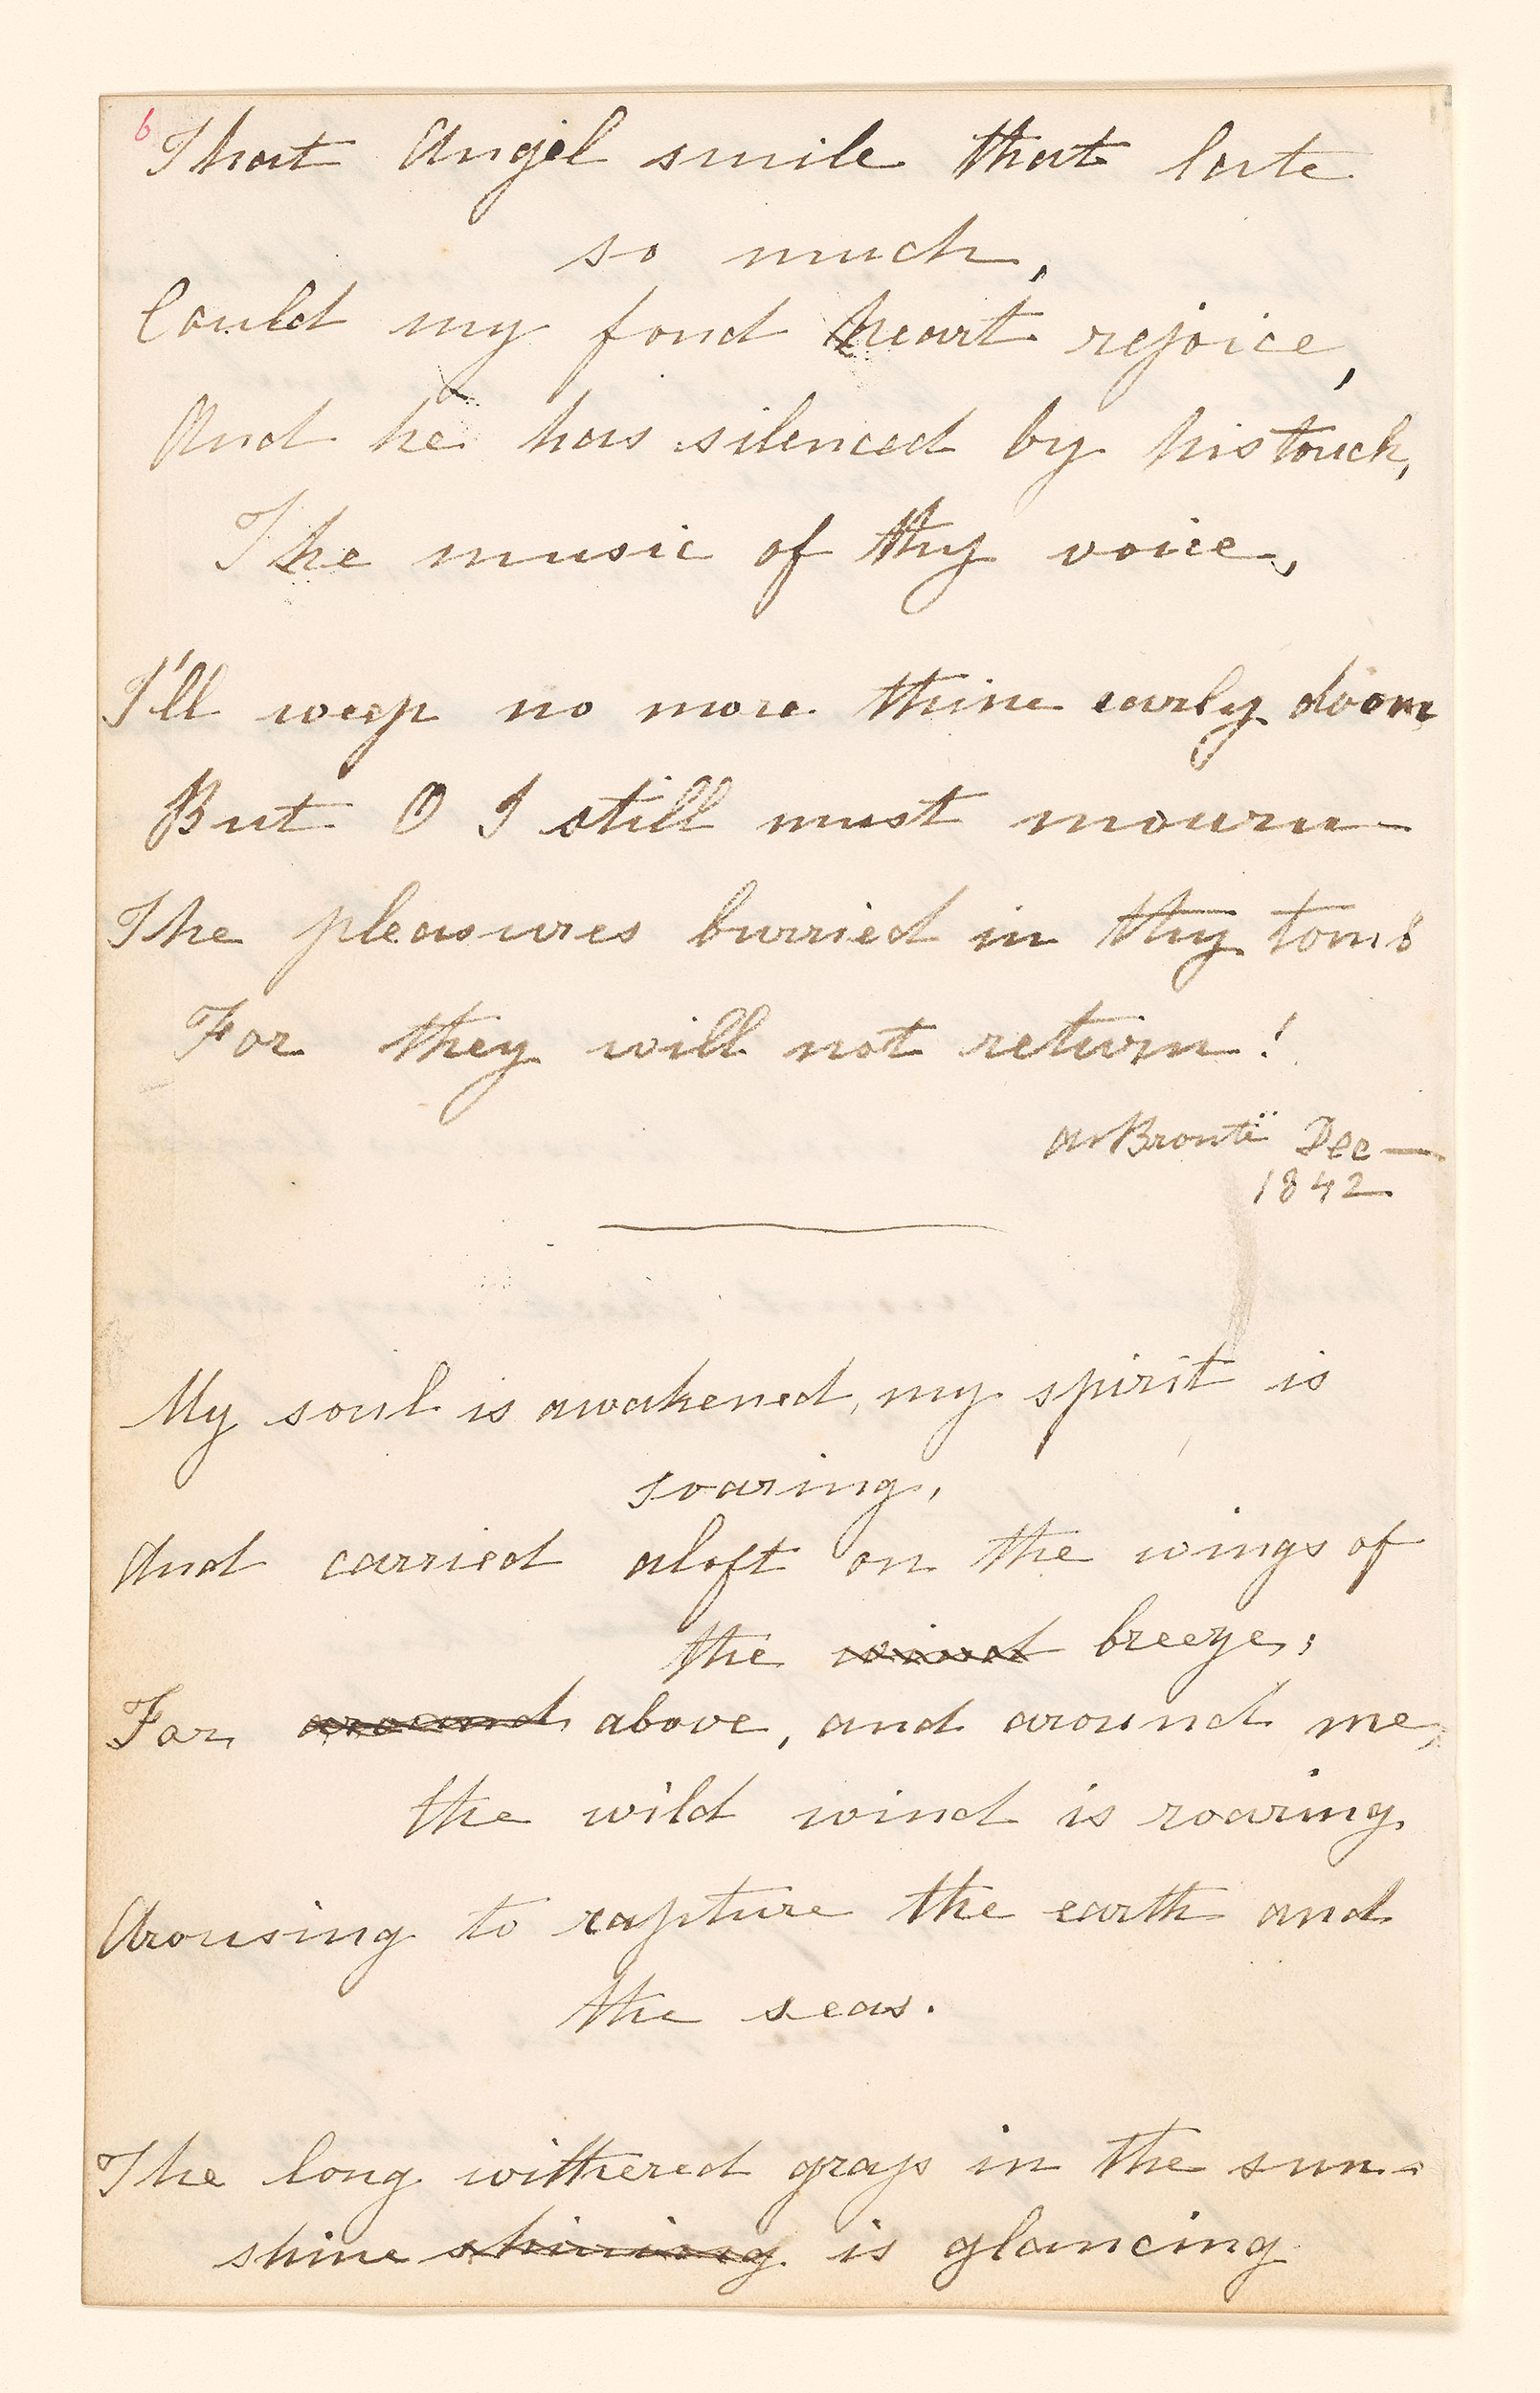 6
That Angel smile that late
so much,
Could my fond heart rejoice,
And he has silenced by his touch,
The music of thy voice,
I'll weep no more thine early doom
But O I still must mourn
The pleasures burried in thy tomb
For they will not return!
A Brontë Dec —
1842
My soul is awakened, my spirit is
soaring,
And carried aloft on the wings of
the wind breeze;
For around above, and around me,
the wild wind is roaring
Arousing to rapture the earth and
the seas.
The long withered grass in the sun-
shine shining is glancing